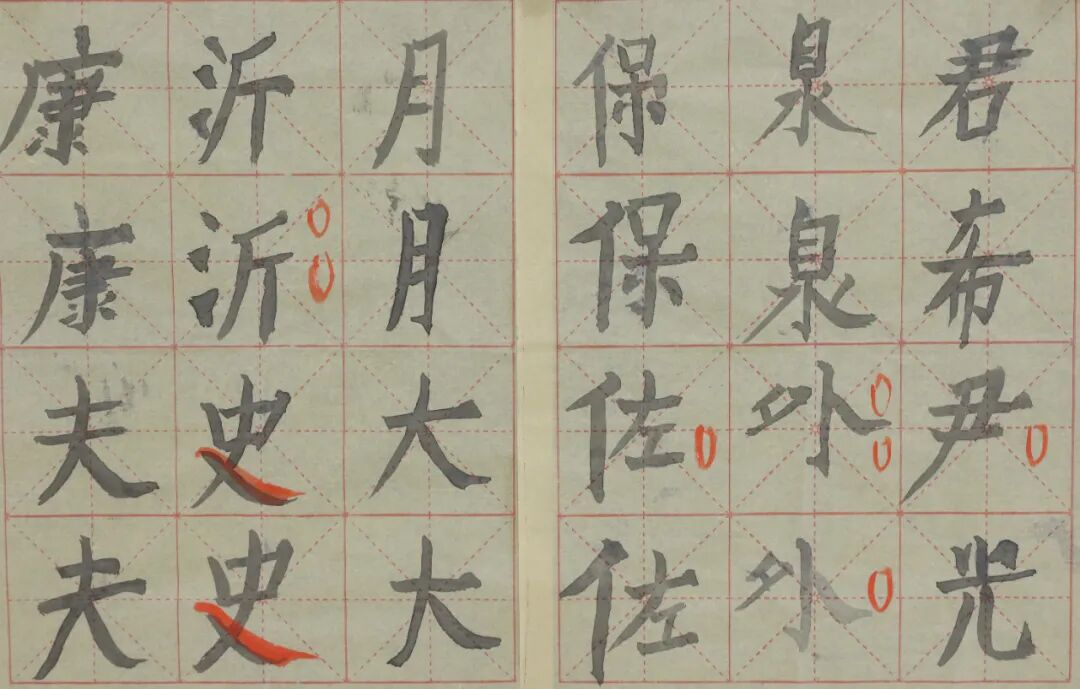 君希尹光
泉泉外外
保保佐佐
月月大大
沂沂史史
康康夫夫